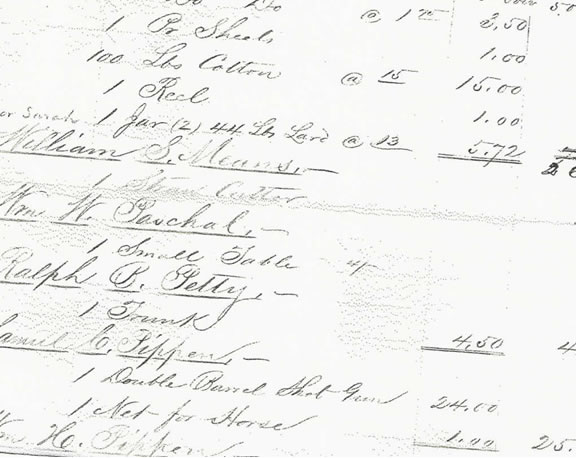 @ 1 3.50
1 Pr Sheals 1.00
100 Lbs Cotton @ 15 15.00
1 Reel 1.00
Sarah 1 Jar (2) 44 Lbs Lard @ 13 5.72
William S. Means,—
1 Straw Cutter
Wm W. Paschal,—
1 Small Table
Ralph B. Petty,—
1 Trunk 4.50 4
Samuel C. Pippen,—
1 Double Barrel Shot Gun 24.00
1 Net for Horse 1.00 25.
Wm. H. Pippen